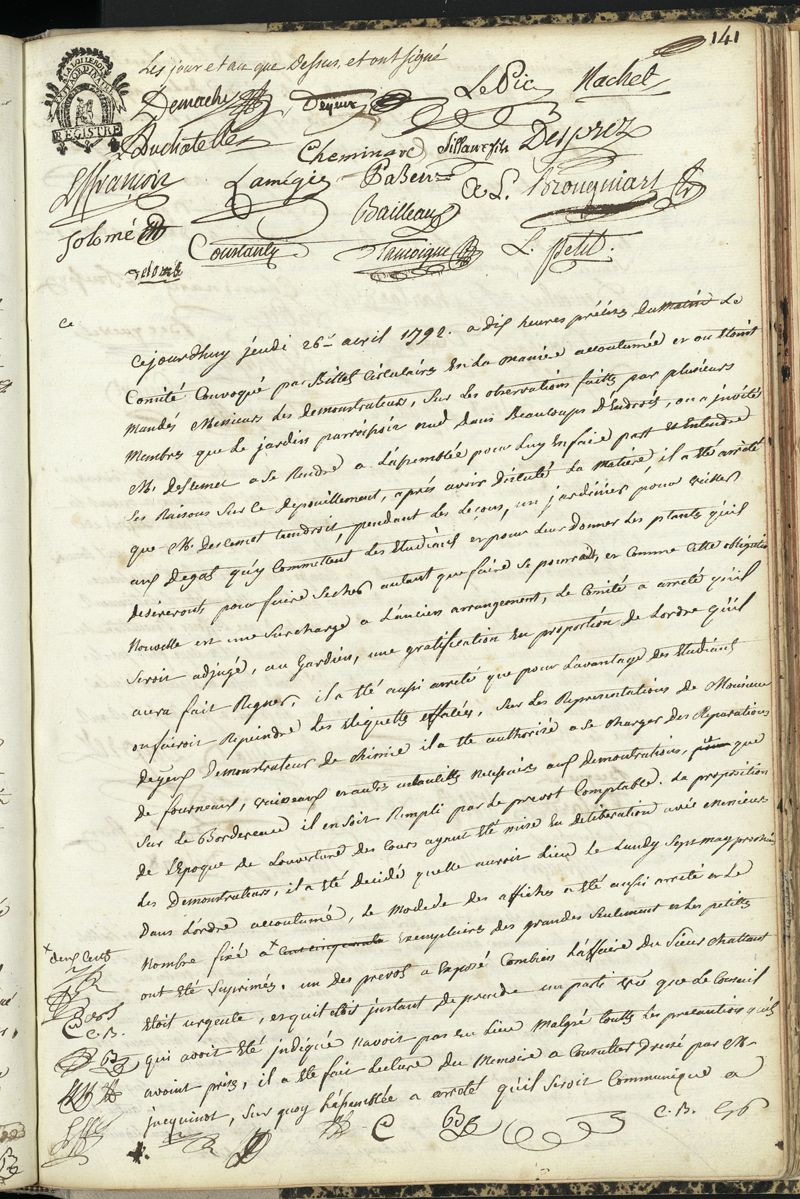 141
REGISTRE
Les jour et an que Dessus, et ont signé
Demachy Deyeux LePic Nachet
Duchatelle Cheminard Sillau Desprez
Lamégie A. L. Brongniart
Bailleau
Solomé Coustanly Tamoigne L. Petit.
ce
Cejourdhuy jeudi 26 avril 1792. a dix heures précises du matin Le
Comité Convoqué par Billet Circulaire En La maniere accoutumée et ou Etoient
mandés Messieurs Les Demonstrateurs, Sur Les observations faites par plusieurs
Membres que Le jardin paroissoit nud dans Beaucoups D'Endroits, on a invité
M. Descemet a Se Rendre a L'assemblée pour Luy En faire part Et Entendre
Ses Raisons Sur ce Depouillement, après avoir Discuté La Matiere, il a Eté arrêté
que M. Descemet tiendroit, pendant Les Leçons, un jardinier pour veiller
aux Degats qu'y Commettent Les Etudians et pour Leur Donner Les plantes qu'ils
désireront pour faire Secher autant que faire Se pourrait, et comme Cette obligation
Nouvelle est une Surcharge a L'ancien arrangement, Le Comité a arreté qu'il
Seroit adjugé, au Gardien, une gratification En proportion de Lordre qu'il
aura fait Regner, il a Eté aussi arreté que pour Lavantage des Etudians
on fairoit Repeindre Les Etiquettes effacées, Sur Les Representations de Monsieur
Deyeux Demonstrateur de Chimie il a Eté authorisé a Se charger Des Reparations
de fourneaux, vaisseaux et autres ustensilles necessaires aux demonstrations, pour que
Sur Le Bordereau il en Soit Rempli par Le prevot Comptable. La proposition
de L'Epoque de Louverture des Cours ayant Eté mise En deliberation avec Messieurs
Les Demonstrateurs, il a Eté décidé quelle auroit Lieu Le Lundy Sept may prochain
Dans Lordre accoutumé, Le Mode de des affiches a Eté aussi arreté et Le
Nombre fixé a × Cent cinquante Exemplaires des grandes Seulement et Les petites
× deux Cents
ont Eté Suprimés. un des prevots a Exposé Combien L'affaire du Sieur Chattaut
Etoit urgente, et qu'il Etoit instant de prendre un parti vu que Le Conseil
C. B.
qui avoit Eté indiqué navoit pas eu Lieu Malgré toutes Les precautions qu'ils
avoient prises, il a Eté fait Lecture du Memoire a Consulter Dressé par M.
jacquinot, Sur quoy L'assemblée a arreté qu'il Seroit Communiqué a
C C. B.